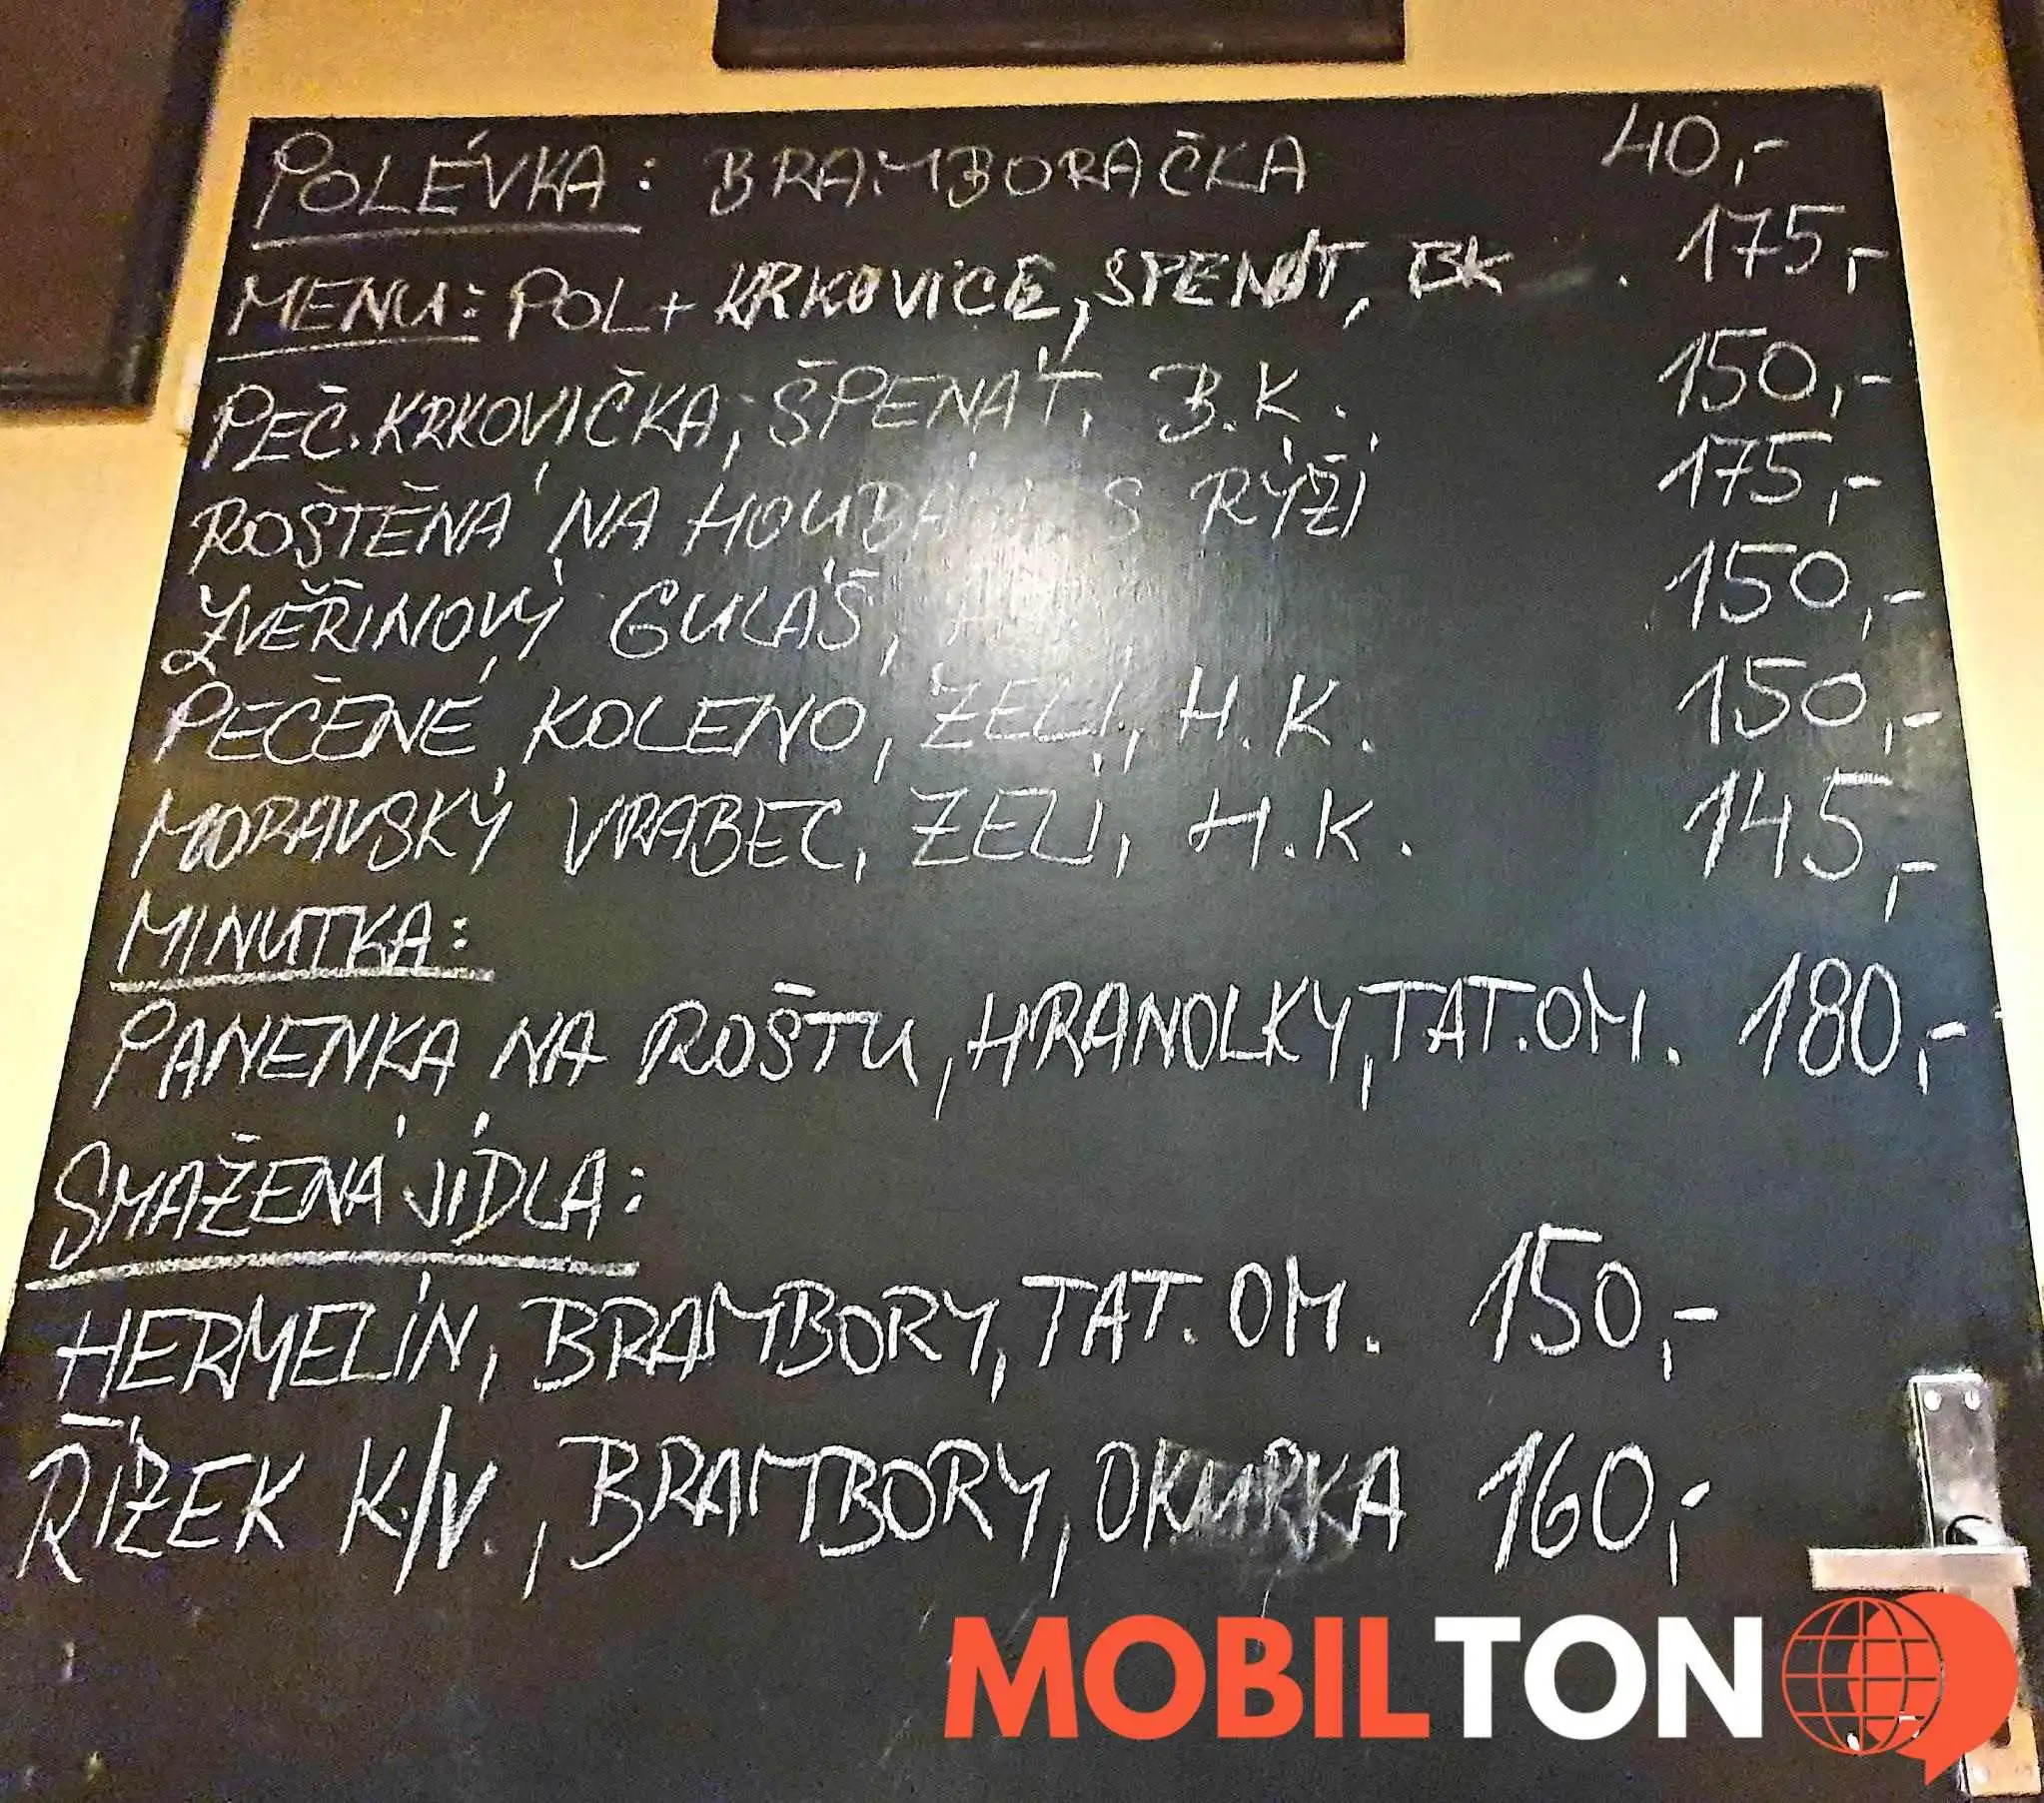 POLÉVKA: BRAMBORAČKA 40,-
MENU: POL + KRKOVICE, SPENÁT, BK 175,-
PEČ. KRKOVIČKA, ŠPENÁT, B.K. 150,-
ROŠTĚNÁ NA HOUBÁ S RÝŽÍ 175,-
ZVĚŘINOVÝ GULÁŠ, 150,-
PEČENÉ KOLENO, ZELÍ, H.K. 150,-
MORAVSKÝ VRABEC, ZELÍ, H.K. 145,-
MINUTKA:
PANENKA NA ROŠTU, HRANOLKY, TAT.OM. 180,-
SMAŽENÁ JÍDLA:
HERMELÍN, BRAMBORY, TAT. OM. 150,-
ŘÍZEK K./V., BRAMBORY, OKURKA 160,-
MOBILTON